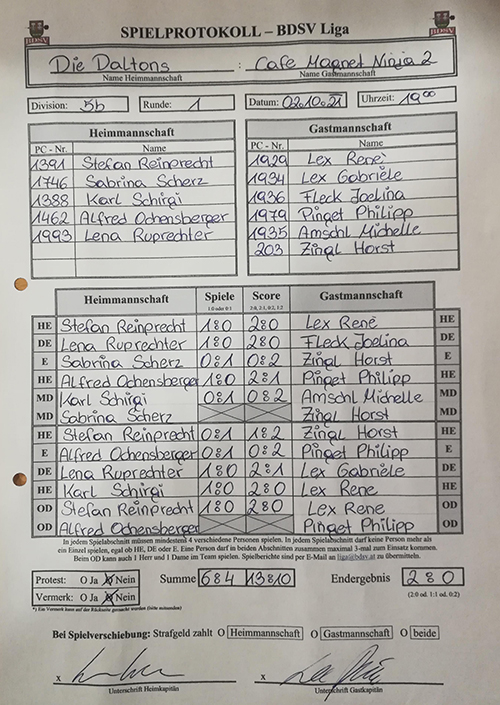 SPIELPROTOKOLL – BDSV Liga
BDSV BDSV
Die Daltons : Cafe Magnet Ninja 2
Name Heimmannschaft Name Gastmannschaft
Division: 5b Runde: 1 Datum: 02.10.21 Uhrzeit: 19 00
Heimmannschaft Gastmannschaft
PC - Nr. Name PC - Nr. Name
1391 Stefan Reinprecht 1929 Lex Renè
1746 Sabrina Scherz 1934 Lex Gabrièle
1388 Karl Schirgi 1936 Fleck Joelina
1462 Alfred Ochensberger 1979 Pinget Philipp
1993 Lena Ruprechter 1935 Amschl Michelle
203 Zingl Horst
Heimmannschaft Spiele Score Gastmannschaft
1:0 oder 0:1 2:0, 2:1, 0:2, 1:2
HE Stefan Reinprecht 1:0 2:0 Lex Renè HE
DE Lena Ruprechter 1:0 2:0 Fleck Joelina DE
E Sabrina Scherz 0:1 0:2 Zingl Horst E
HE Alfred Ochensberger 1:0 2:1 Pinget Philipp HE
MD Karl Schirgi 0:1 0:2 Amschl Michelle MD
MD Sabrina Scherz Zingl Horst MD
HE Stefan Reinprecht 0:1 1:2 Zingl Horst HE
E Alfred Ochensberger 0:1 0:2 Pinget Philipp E
DE Lena Ruprechter 1:0 2:1 Lex Gabrièle DE
HE Karl Schirgi 1:0 2:0 Lex Rene HE
OD Stefan Reinprecht 1:0 2:0 Lex Rene OD
OD Alfred Ochensberger Pinget Philipp OD
In jedem Spielabschnitt müssen mindestens 4 verschiedene Personen spielen. In jedem Spielabschnitt darf keine Person mehr als
ein Einzel spielen, egal ob HE, DE oder E. Eine Person darf in beiden Abschnitten zusammen maximal 3-mal zum Einsatz kommen.
Beim OD kann auch 1 Herr und 1 Dame im Team spielen. Spielberichte sind per E-Mail an liga@bdsv.at zu übermitteln.
Protest: O Ja O Nein Summe 6:4 13:10 Endergebnis 2:0
Vermerk: O Ja O Nein (2:0 od. 1:1 od. 0:2)
*) Ein Vermerk kann auf der Rückseite gemacht werden
Bei Spielverschiebung: Strafgeld zahlt O Heimmannschaft O Gastmannschaft O beide
x x
Unterschrift Heimkapitän Unterschrift Gastkapitän